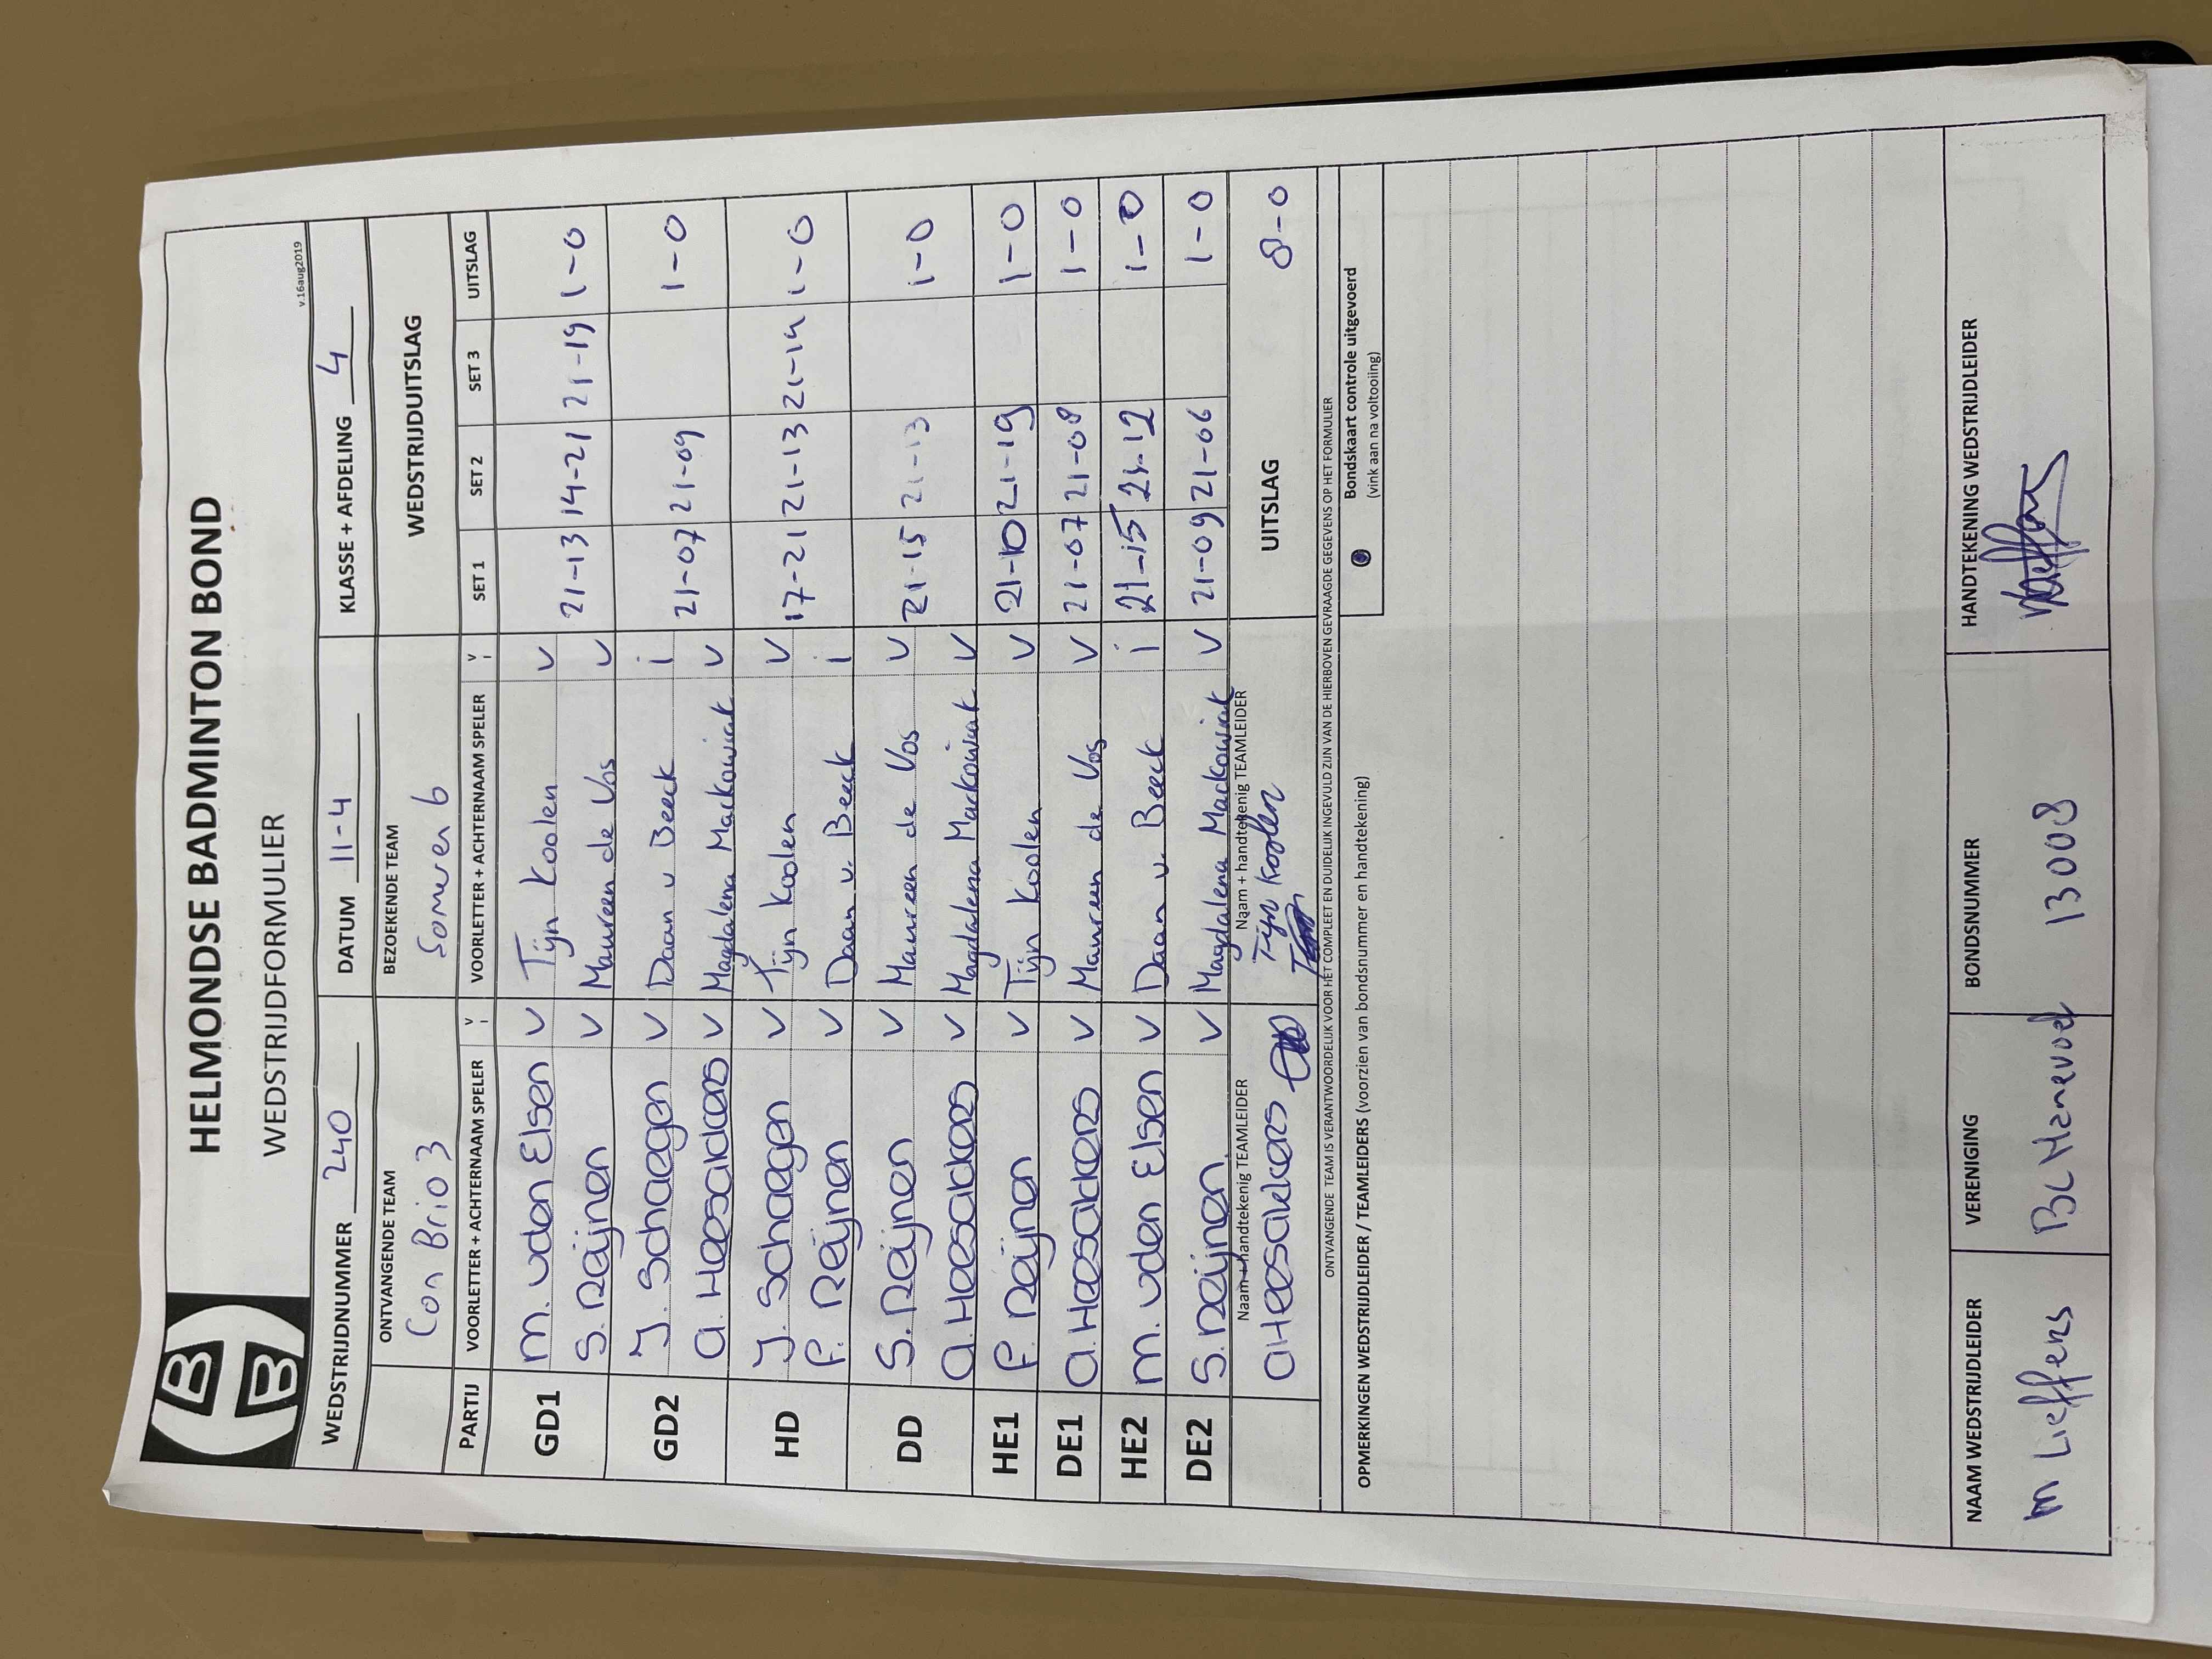 HELMONDSE BADMINTON BOND
WEDSTRIJDFORMULIER
v.16aug2019
WEDSTRIJDNUMMER 240 DATUM 11-4 KLASSE + AFDELING 4
ONTVANGENDE TEAM BEZOEKENDE TEAM WEDSTRIJDUITSLAG
Con Brio 3 Someren 6
PARTIJ VOORLETTER + ACHTERNAAM SPELER V I VOORLETTER + ACHTERNAAM SPELER V I SET 1 SET 2 SET 3 UITSLAG
GD1 M. vden Elsen V Tijn Koolen V
S. Reijnen V Maureen de Vos V 21-13 14-21 21-19 1-0
GD2 J. Schaegen V Daan v Beeck i
A. Heesakkers V Magdalena Mackowiak V 21-07 21-09 1-0
HD J. Schaegen V Tijn Koolen V
P. Reijnen V Daan v. Beeck i 17-21 21-13 21-19 1-0
DD S. Reijnen V Maureen de Vos V
A. Heesakkers V Magdalena Mackowiak V 21-15 21-13 1-0
HE1 P. Reijnen V Tijn Koolen V 21-10 21-19 1-0
DE1 A. Heesakkers V Maureen de Vos V 21-07 21-08 1-0
HE2 M. vden Elsen V Daan v. Beeck i 21-15 21-12 1-0
DE2 S. Reijnen V Magdalena Mackowiak V 21-09 21-06 1-0
Naam + handtekenig TEAMLEIDER Naam + handtekenig TEAMLEIDER UITSLAG 8-0
A Heesakkers Tijn Koolen
ONTVANGENDE TEAM IS VERANTWOORDELIJK VOOR HET COMPLEET EN DUIDELIJK INGEVULD ZIJN VAN DE HIERBOVEN GEVRAAGDE GEGEVENS OP HET FORMULIER
OPMERKINGEN WEDSTRIJDLEIDER / TEAMLEIDERS (voorzien van bondsnummer en handtekening)
Bondskaart controle uitgevoerd
(vink aan na voltooiing)
NAAM WEDSTRIJDLEIDER VERENIGING BONDSNUMMER HANDTEKENING WEDSTRIJDLEIDER
M Lieffens BC Hanevoet 13008